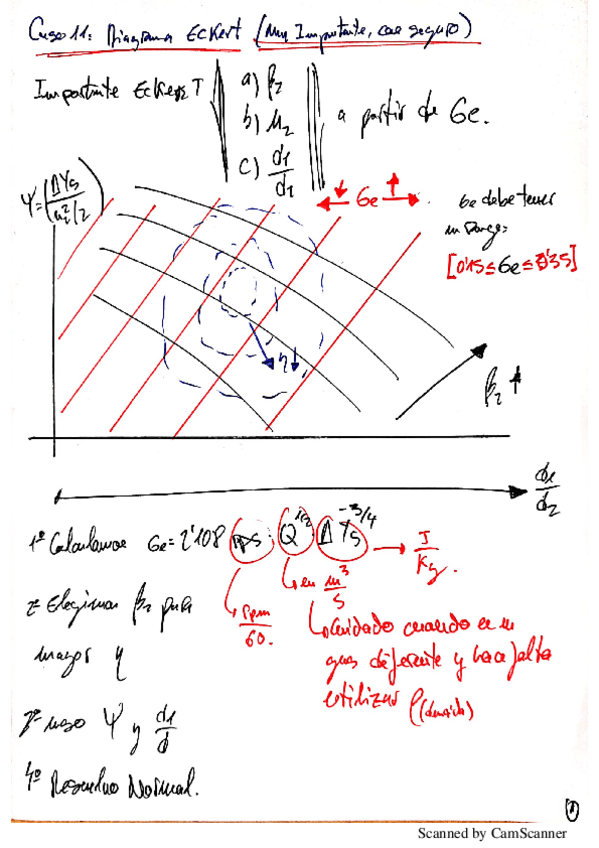 Caso 11: Diagrama Eckert (Muy Importante, cae seguro)
Importante Eckert
a) β₂
b) μ₂
c) d1/d2
a partir de Ge.
Ψ = (ΔYs / u₂²/2)
Ge
Ge debe tener
un rango:
[0'15 ≤ Ge ≤ 0'35]
η↓
β₂ ↑
d1/d2
1º Calculamos Ge = 2'108 rps · Q^1/2 ΔYs^-3/4 → J/Kg.
rpm/60.
en m³/s
Cuidado cuando es un
gas diferente y hace falta
utilizar ρ (densidad)
2º Elegimos β₂ para
mayor η
3º saco Ψ y d1/d
4º Resuelvo Normal.
1
Scanned by CamScanner